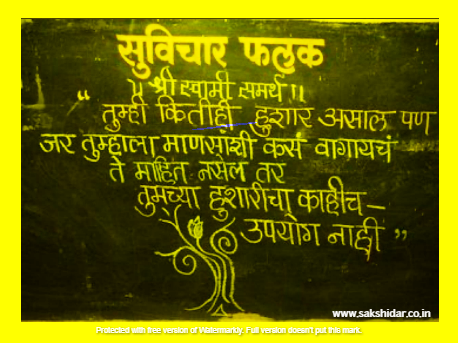 सुविचार फलक
॥ श्री स्वामी समर्थ ॥
“ तुम्ही कितीही हुशार असाल पण
जर तुम्हाला माणसांशी कसं वागायचं
ते माहित नसेल तर
तुमच्या हुशारीचा काहीच –
उपयोग नाही ”
www.sakshidar.co.in
Protected with free version of Watermarkly. Full version doesn't put this mark.